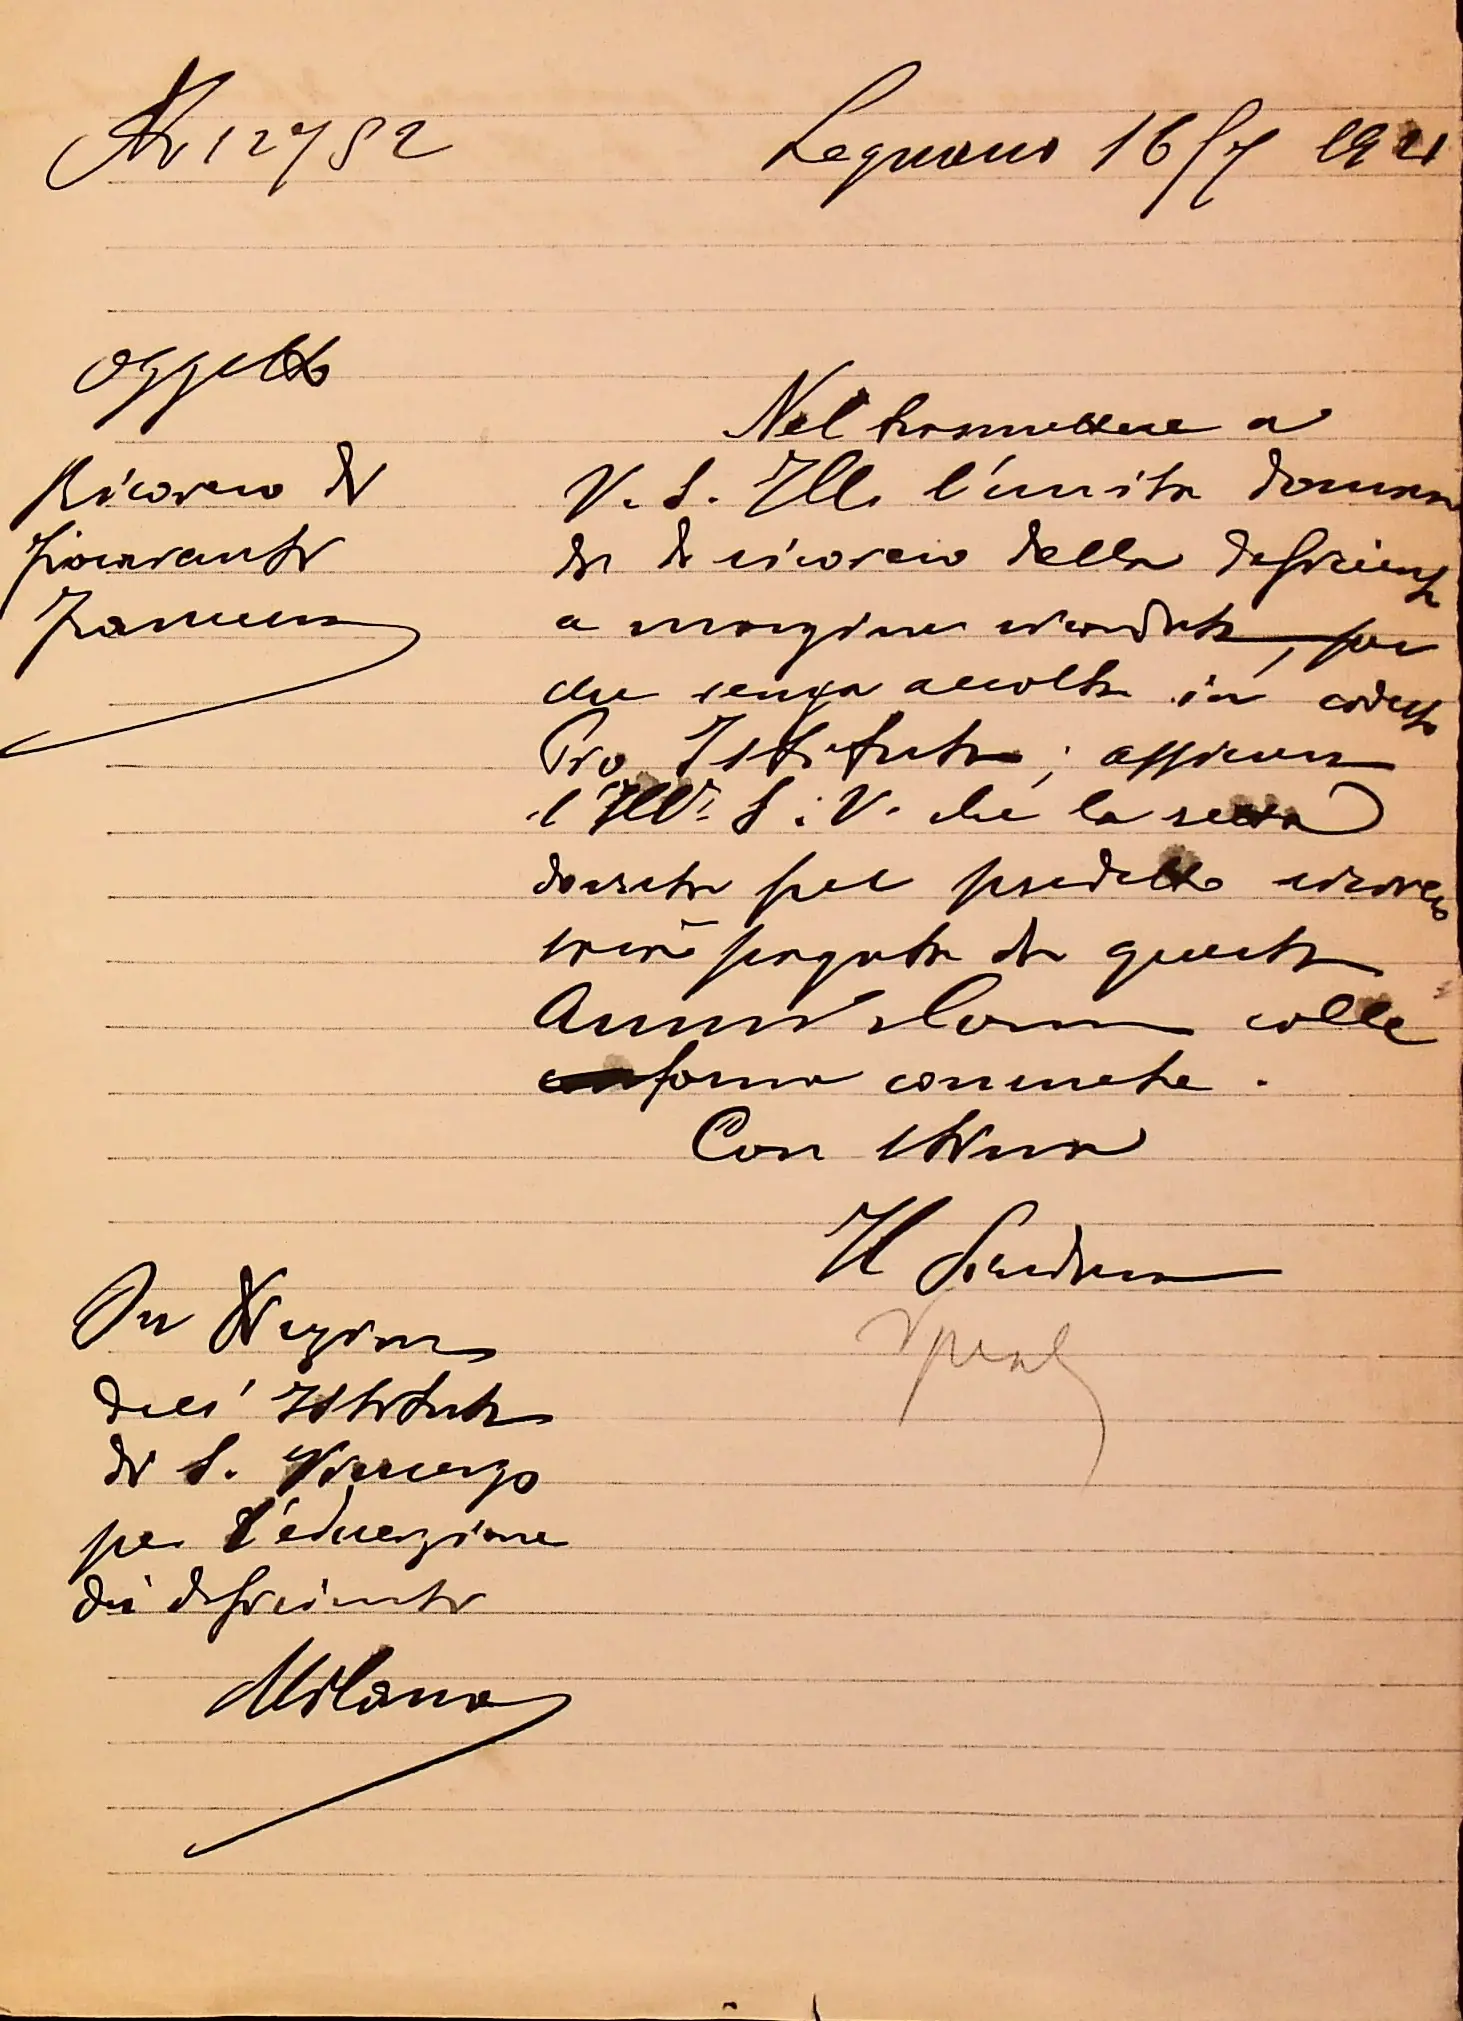 N 12752
Legnano 16/7 1921
Oggetto
Ricovero di
Fioravanti
Nel trasmettere a
V. S. Ill. l'unita doman
da di ricovero della deficiente
a margine ricordata, per
che venga accolta in codesto
Pio Istituto; assicuro
l'Ill. S. V. che la retta
dovuta pel predetto ricovero
verrà pagata da questa
Amm colle
forma consuete.
Con stima
Il Sindaco
On Direzione
dell'Istituto
di S. Vincenzo
per l'educazione
dei deficienti
Milano